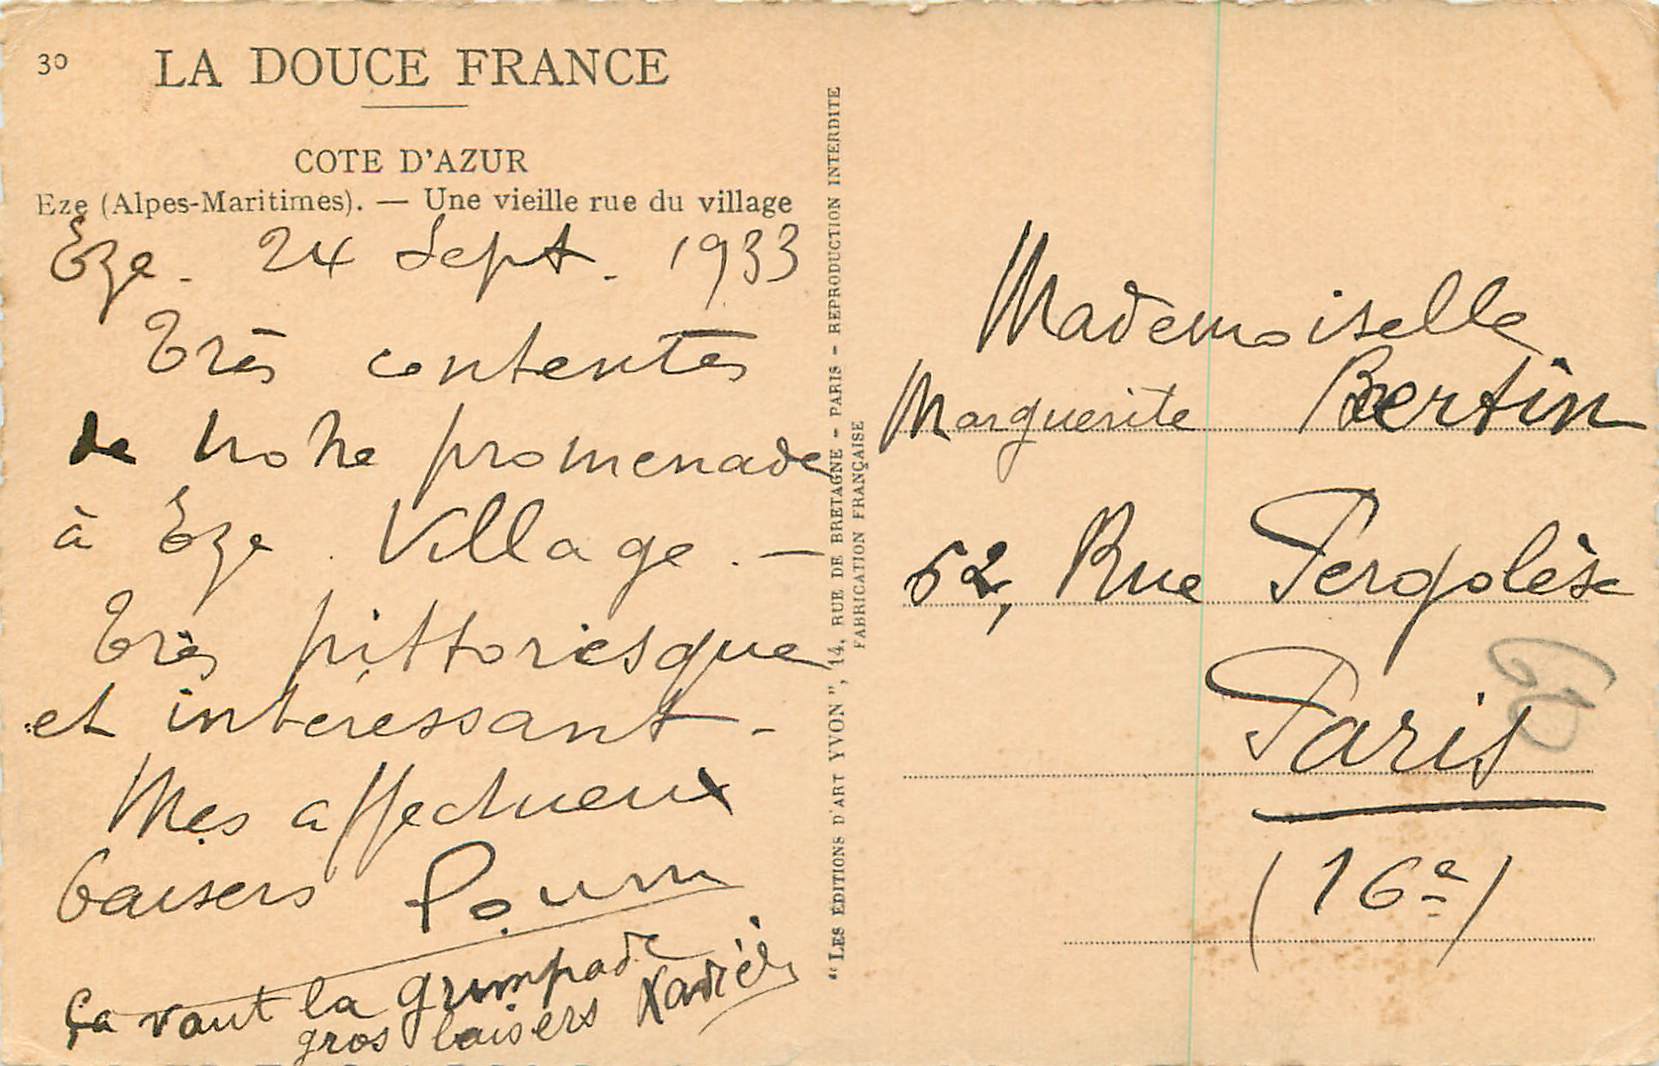 30
LA DOUCE FRANCE
COTE D'AZUR
Eze (Alpes-Maritimes). — Une vieille rue du village
Eze. 24 Sept. 1933
Très contentes
de notre promenade
à Eze Village. —
Très pittoriesque
et intéressant -
Mes affectueux
baisers Poum
ça vaut la grimpade
gros baisers
"LES EDITIONS D'ART YVON", 14, RUE DE BRETAGNE - PARIS - REPRODUCTION INTERDITE
FABRICATION FRANÇAISE
Mademoiselle
Marguerite Bertin
62, Rue Pergolèse
Paris
(16e)